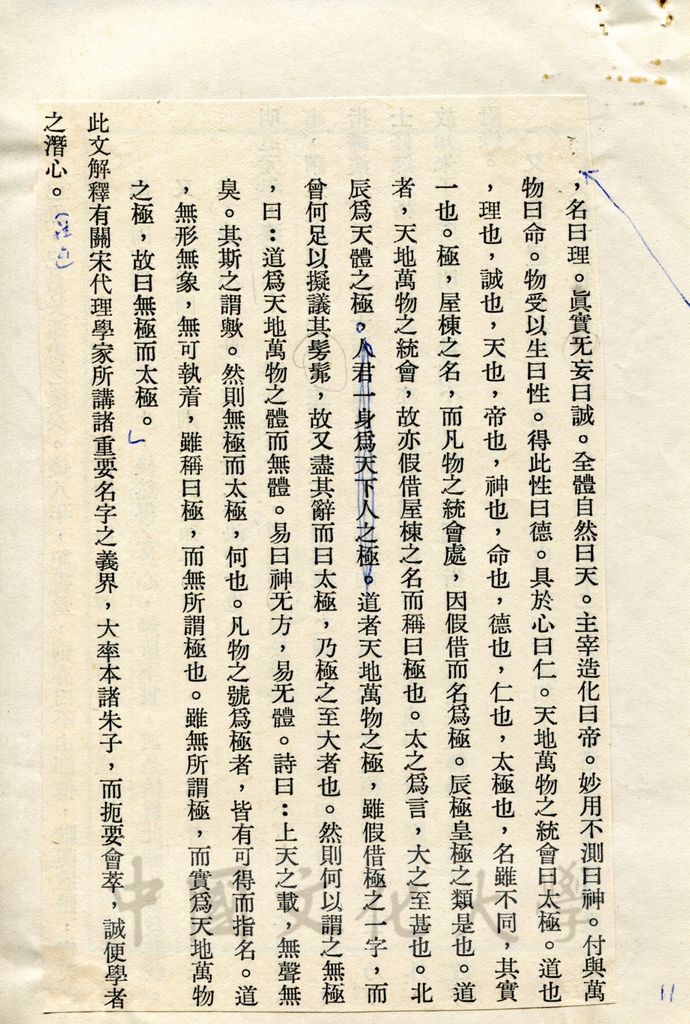 ，名曰理。眞實无妄曰誠。全體自然曰天。主宰造化曰帝。妙用不測曰神。付與萬
物曰命。物受以生曰性。得此性曰德。具於心曰仁。天地萬物之統會曰太極。道也
，理也，誠也，天也，帝也，神也，命也，德也，仁也，太極也，名雖不同，其實
一也。極，屋棟之名，而凡物之統會處，因假借而名爲極。辰極皇極之類是也。道
者，天地萬物之統會，故亦假借屋棟之名而稱曰極也。太之爲言，大之至甚也。北
辰爲天體之極。人君一身爲天下人之極。道者天地萬物之極，雖假借極之一字，而
曾何足以擬議其髣髴，故又盡其辭而曰太極，乃極之至大者也。然則何以謂之無極
，曰：道爲天地萬物之體而無體。易曰神无方，易无體。詩曰：上天之載，無聲無
臭。其斯之謂歟。然則無極而太極，何也。凡物之號爲極者，皆有可得而指名。道
，無形無象，無可執着，雖稱曰極，而無所謂極也。雖無所謂極，而實爲天地萬物
之極，故曰無極而太極。」
此文解釋有關宋代理學家所講諸重要名字之義界，大率本諸朱子，而扼要會萃，誠便學者
之潛心。
中國文化大學
11